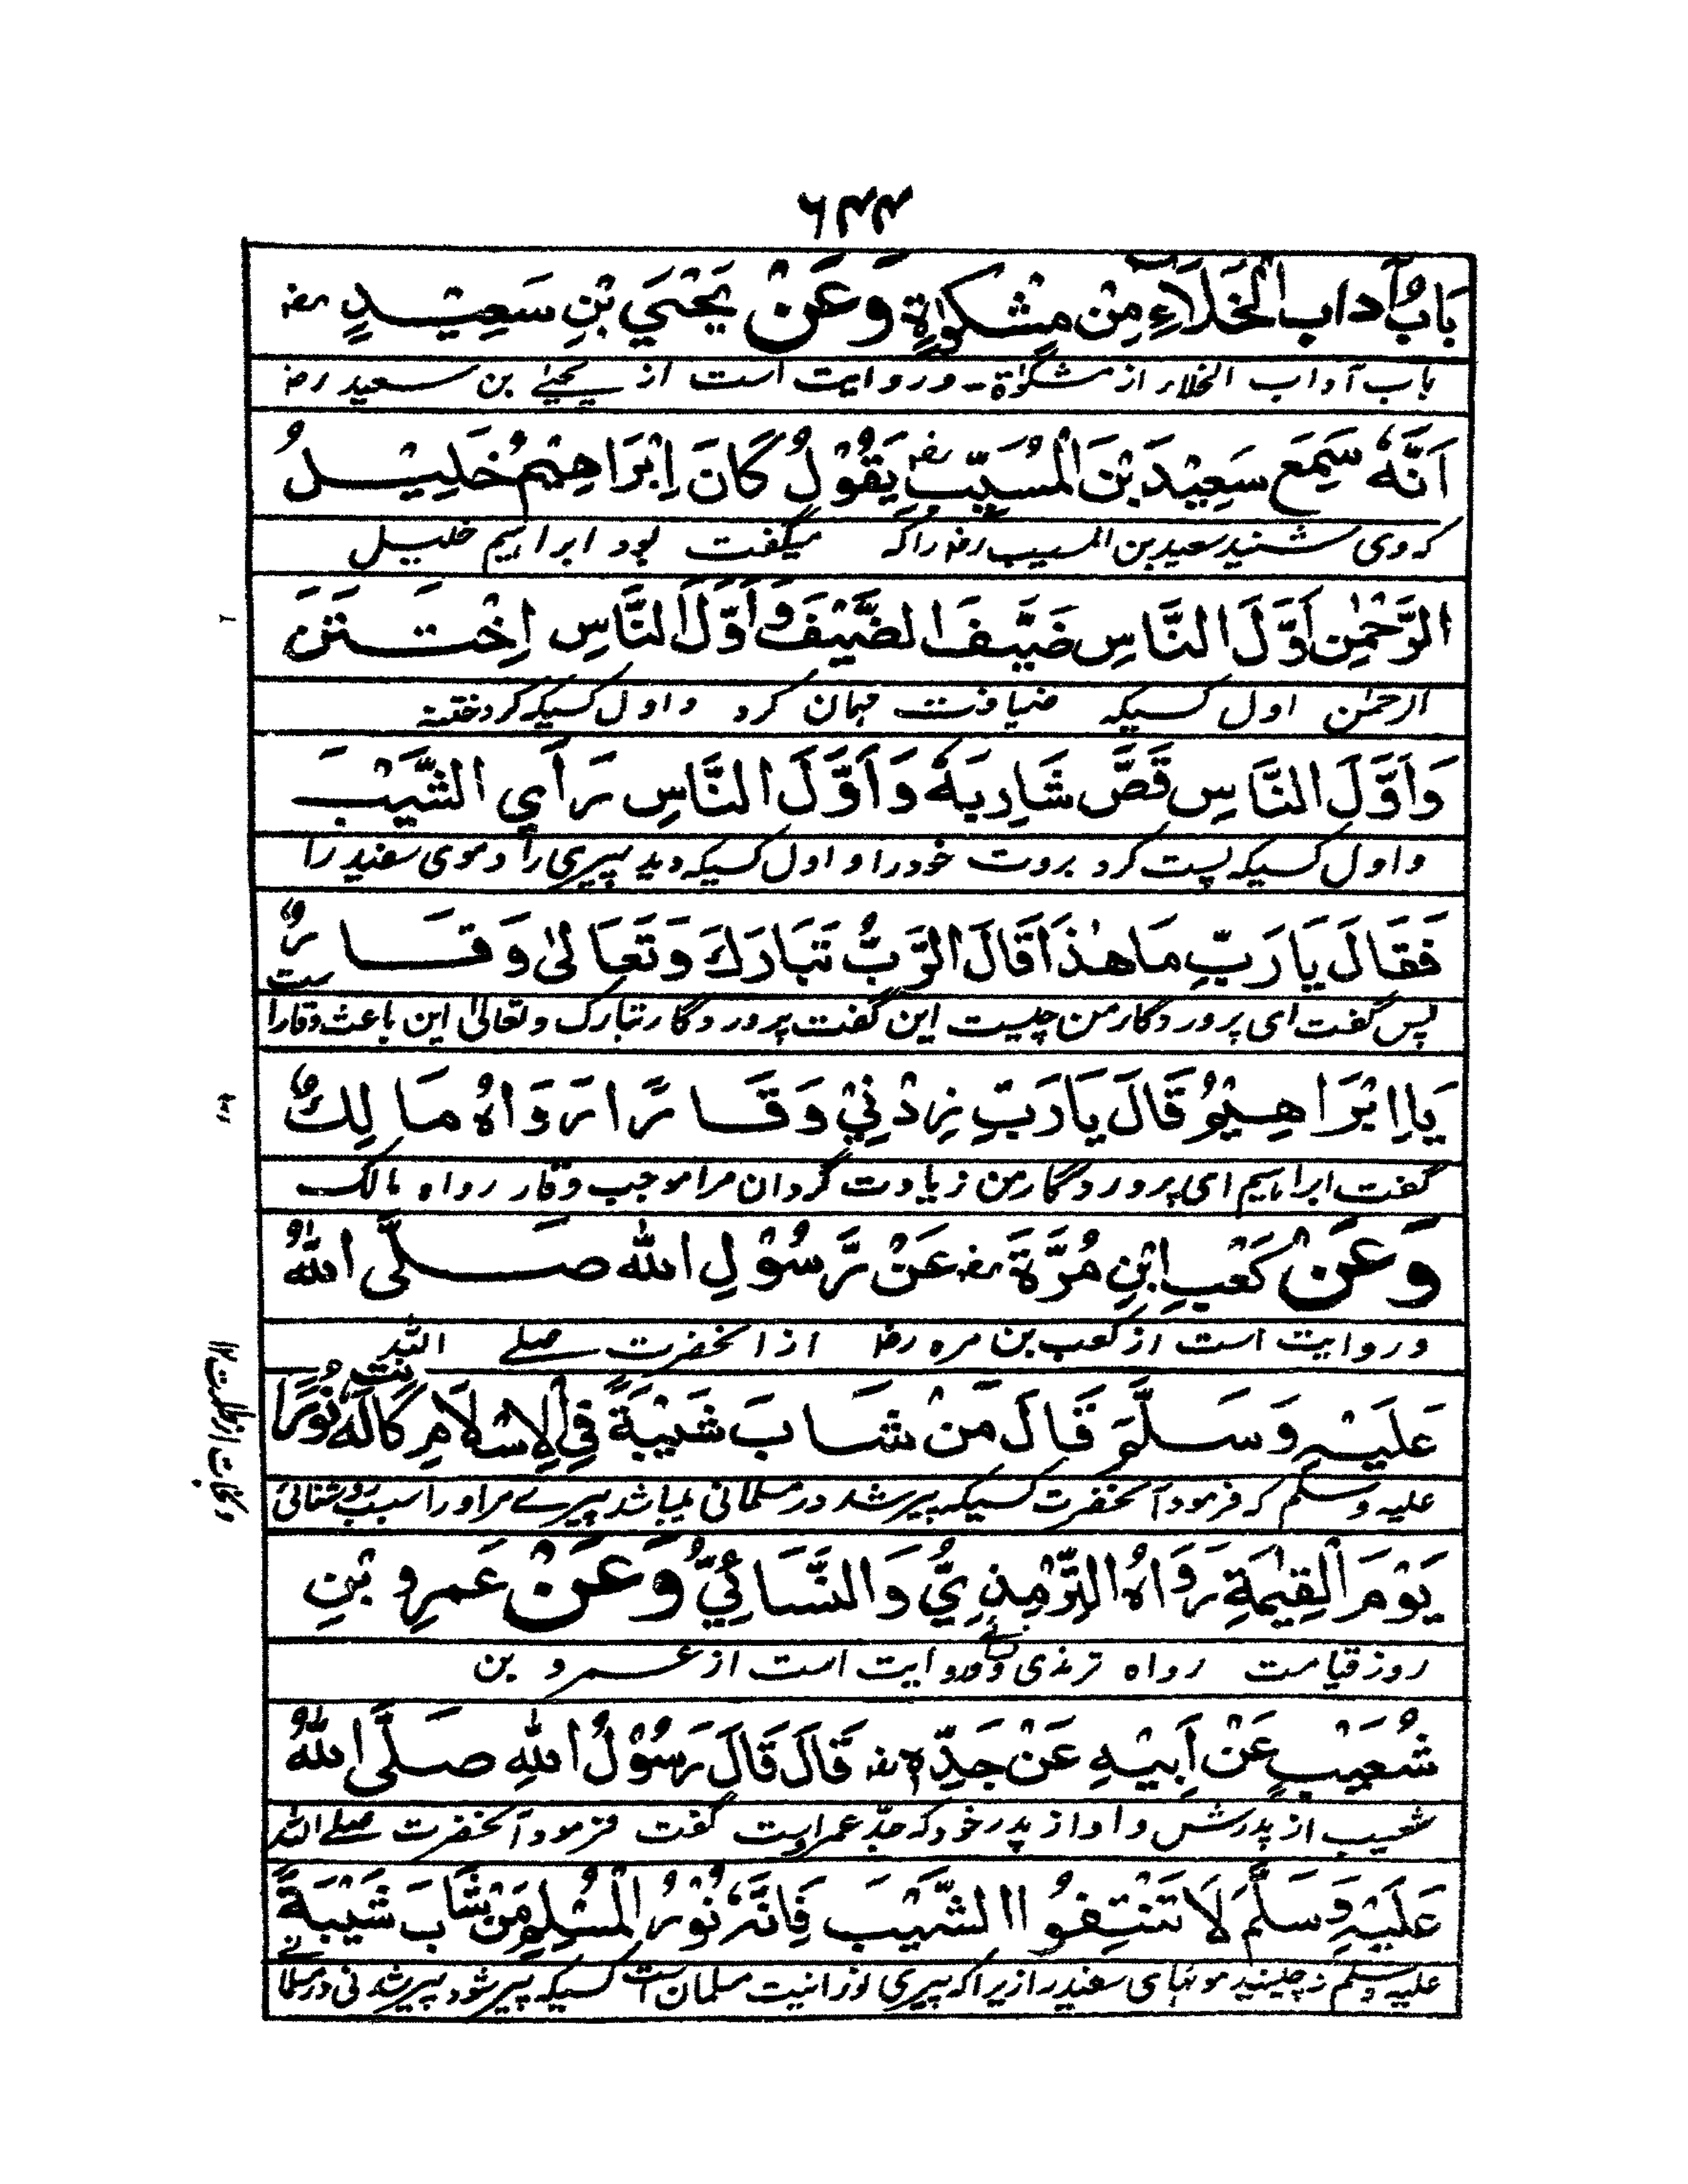 ۲۴۶
بَابُ آدابِ الْخَلَاءِ مِنْ مِشْكوٰةٍ وَعَنْ يَحْيَي بْنِ سَعِيْدٍ رض
باب آداب الخلاء از مشکوٰة - و روایت است از یحییٰ بن سعید رض
اَنَّهٗ سَمِعَ سَعِيْدَ بْنَ الْمُسَيِّبِ رض يَقُوْلُ كَانَ اِبْرَاهِيْمُ خَلِيْلُ
که وی شنید سعید بن المسیب رض را که میگفت بود ابراہیم خلیل
الرَّحْمٰنِ اَوَّلَ النَّاسِ ضَيَّفَ الضَّيْفَ وَ اَوَّلَ النَّاسِ اِخْتَتَنَ
الرحمٰن اول کسیکه ضیافت مہمان کرد و اول کسیکه کرد ختنہ
وَ اَوَّلَ النَّاسِ قَصَّ شَارِبَهٗ وَ اَوَّلَ النَّاسِ رَأَى الشَّيْبَ
و اول کسیکه پست کرد بروت خود را و اول کسیکه دید پیری را و موی سفید را
فَقَالَ يَا رَبِّ مَا هٰذَا قَالَ الرَّبُّ تَبَارَكَ وَ تَعَالىٰ وَقَارٌ
پس گفت ای پروردگار من چیست این گفت پروردگار تبارک و تعالیٰ این باعث وقار است
يَا اِبْرَاهِيْمُ قَالَ يَا رَبِّ زِدْنِيْ وَقَارًا رَوَاهُ مَالِكٌ
گفت ابراہیم ای پروردگار من زیادت گردان مرا موجب وقار رواه مالک
وَعَنْ كَعْبِ ابْنِ مُرَّةَ رض عَنْ رَّسُوْلِ الله صَلَّى اللهُ
و روایت است از کعب بن مره رض از آنحضرت صلے اللہ
عَلَيْهِ وَسَلَّمَ قَالَ مَنْ شَابَ شَيْبَةً فِي الْاِسْلَامِ كَانَتْ لَهٗ نُوْرًا
علیه و سلم که فرمود آنحضرت کسیکه پیر شد در مسلمانی میباشد پیرے مر او را سبب روشنائی
يَوْمَ الْقِيٰمَةِ رَوَاهُ التِّرْمِذِيُّ وَالنَّسَائِيُّ وَعَنْ عَمرِو بْنِ
روز قیامت رواه ترمذی و نسائے و روایت است از عمرو بن
شُعَيْبٍ عَنْ اَبِيْهِ عَنْ جَدِّهٖ رض قَالَ قَالَ رَسُوْلُ اللهِ صَلَّى اللهُ
شعیب از پدرش و او از پدر خود که جد عمر است گفت فرمود آنحضرت صلے اللہ
عَلَيْهِ وَسَلَّمَ لَا تَنْتِفُوا الشَّيْبَ فَاِنَّهٗ نُوْرُ الْمُسْلِمِ مَنْ شَابَ شَيْبَةً
علیه وسلم نچینید مویہای سفید را زیرا که پیری نورانیت مسلمان است کسیکه پیر شود پیر شدنی در مسلمانے
و نجات از ظلمت ۱۲